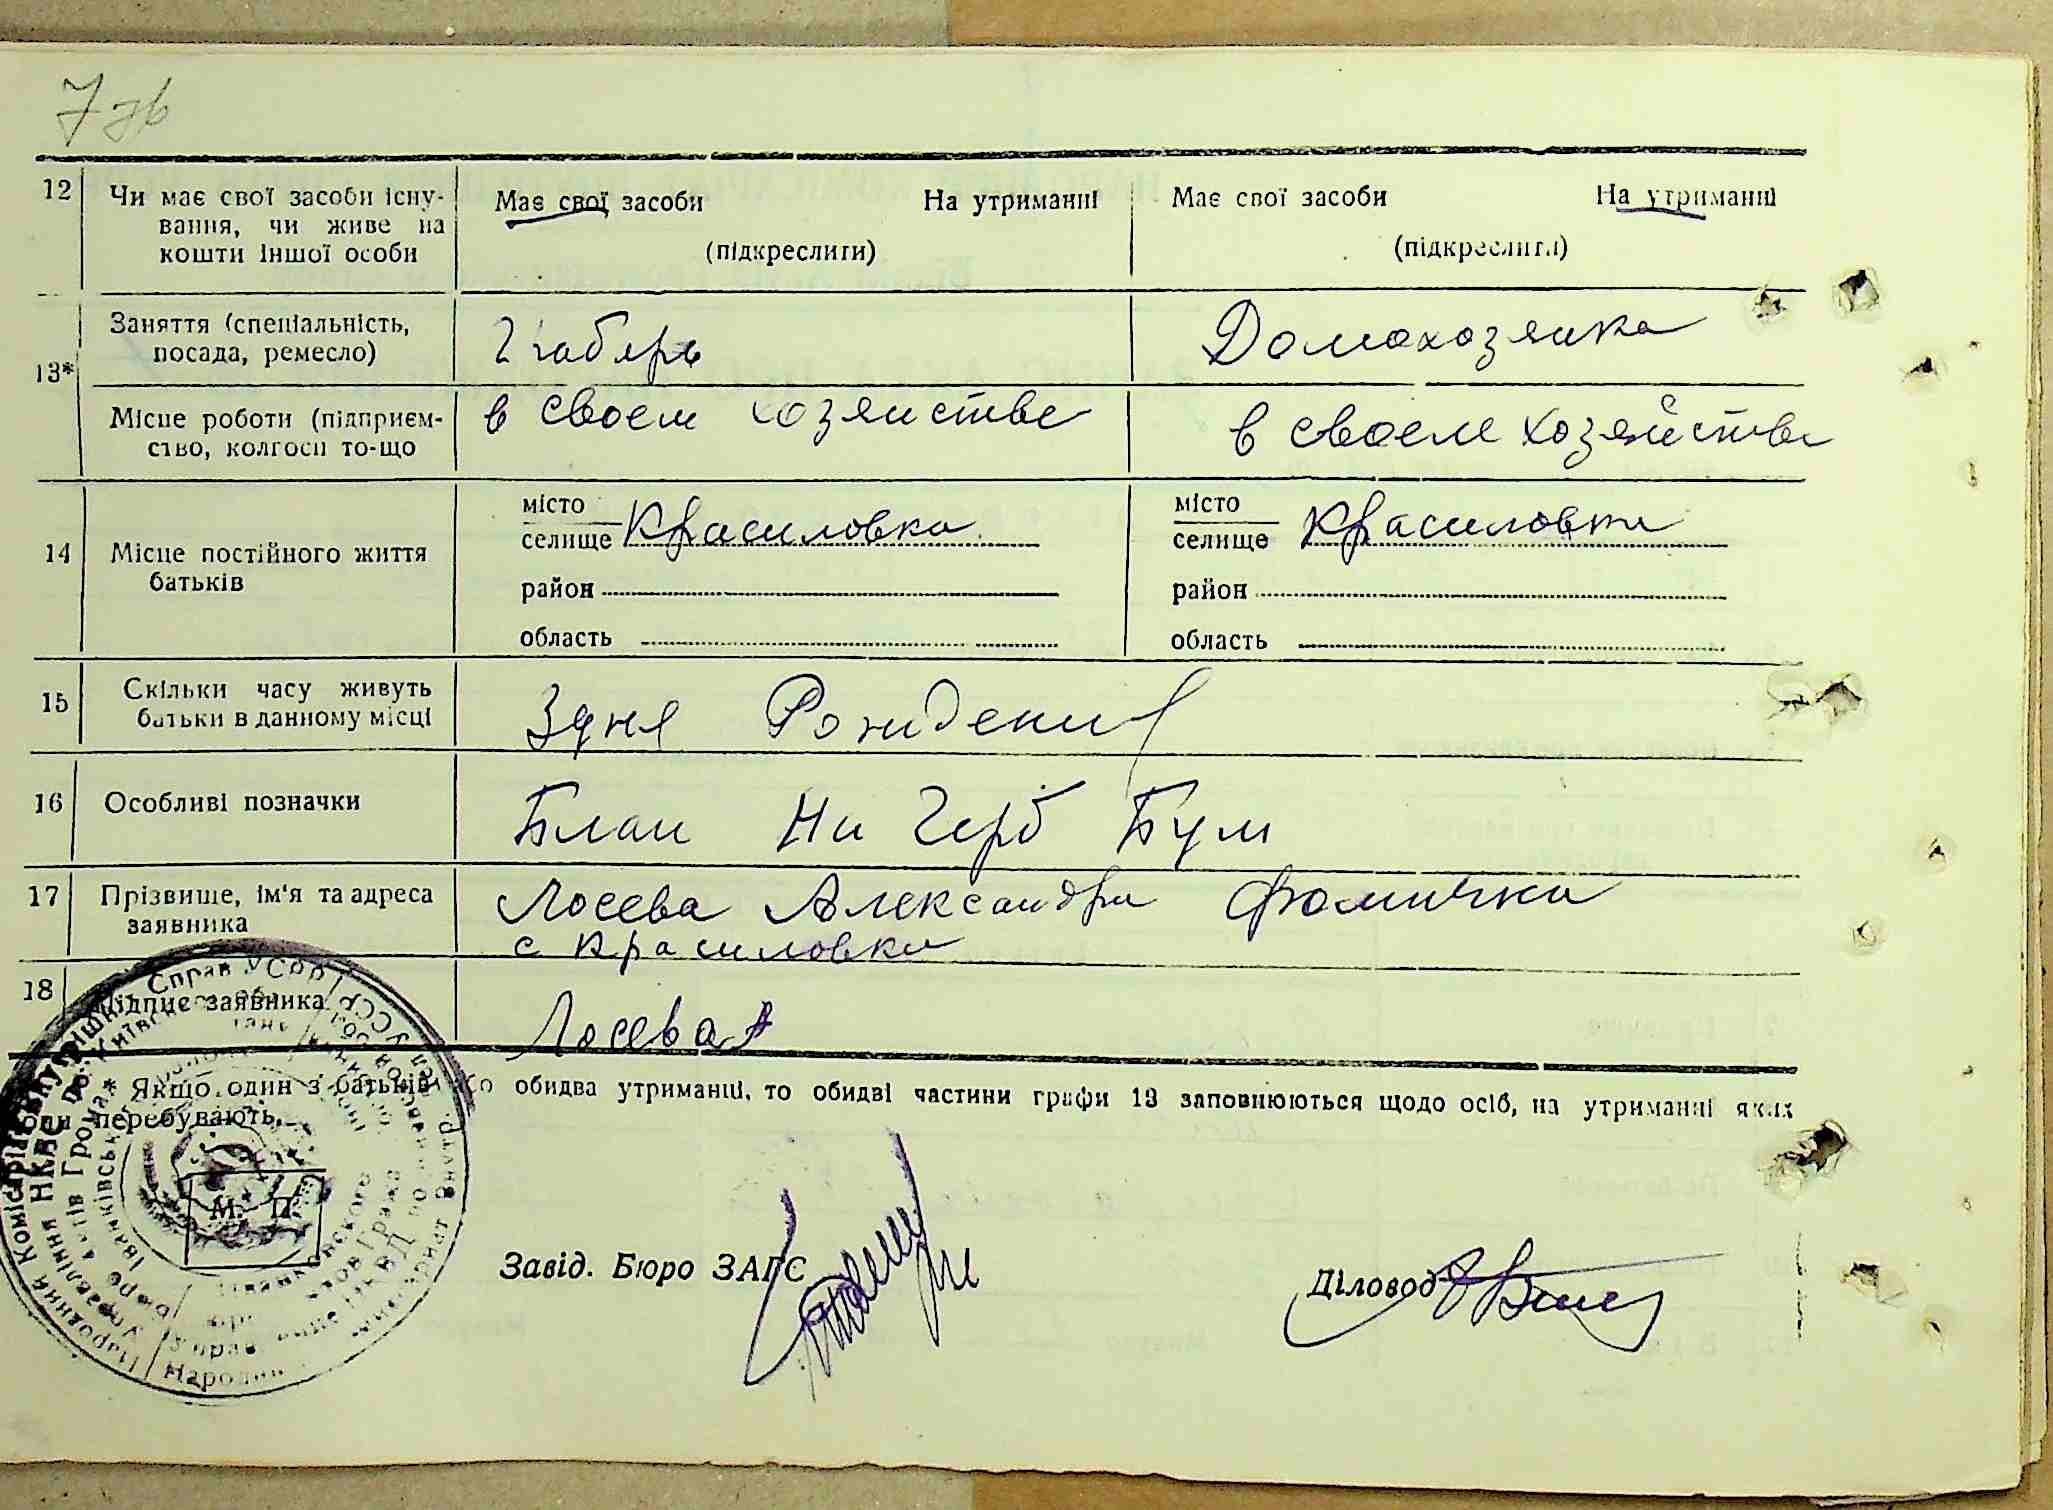 7зв
12
Чи має свої засоби існу-
вання, чи живе на
кошти іншої особи
Має свої засоби На утриманні
(підкреслити)
Має свої засоби На утриманні
(підкреслити)
13*
Заняття (спеціальність,
посада, ремесло)
Грабарь
Домохозяика
Місце роботи (підприєм-
ство, колгосп то-що
в своем хозяистве
в своем хозяйстве
14
Місце постійного життя
батьків
місто
селище Красиловка
район
область
місто
селище Красиловка
район
область
15
Скільки часу живуть
батьки в данному місці
Здня Рождения
16
Особливі позначки
Блан На Герб Бум
17
Прізвище, ім'я та адреса
заявника
Лосева Александра Фомична
с Красиловка
18
Підпис заявника
Лосева
Якщо один з батьків або обидва утриманці, то обидві частини графи 13 заповнюються щодо осіб, на утриманні яких
вони перебувають.
М. П.
Завід. Бюро ЗАГС
Діловод